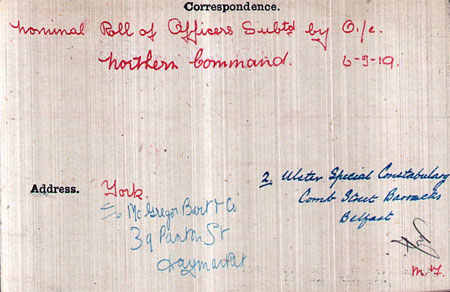 Correspondence.
Nominal Roll of Officers Subtd by O.i/c.
Northern Command. 6-9-19.
Address. York.
c/o McGregor Bert & Co
39 Panton St
Haymarket
2, Ulster Special Constabulary
Comb Street Barracks
Belfast
M.F.